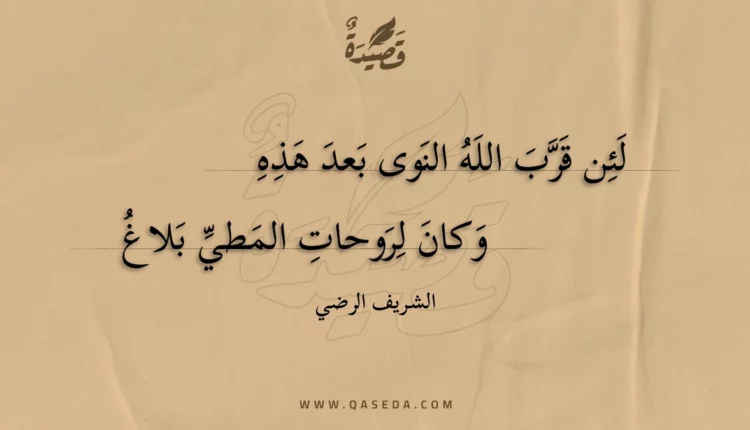 قَصِيدَةٌ
لَئِن قَرَّبَ اللَهُ النَوى بَعدَ هَذِهِ
وَكانَ لِرَوحاتِ المَطيِّ بَلاغُ
الشريف الرضي
WWW.QASEDA.COM